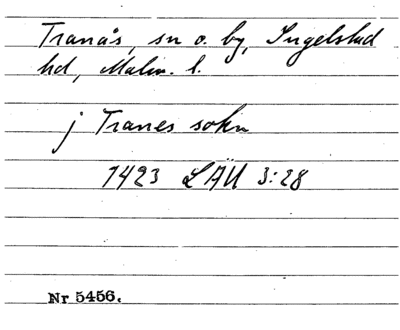 Tranås, sn o. by, Ingelstad
hd, Malm. l.
j Tranes sokn
1423 LÄU 3:28
Nr 5456.